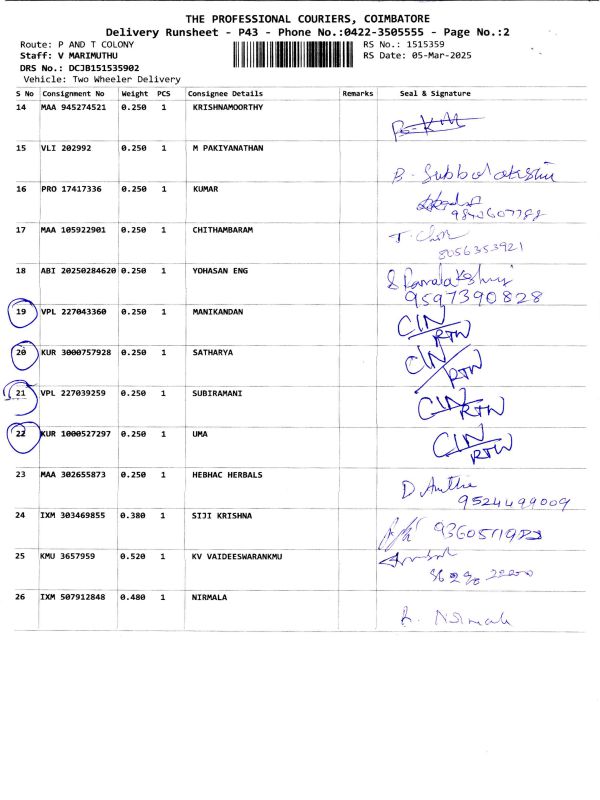 THE PROFESSIONAL COURIERS, COIMBATORE
Delivery Runsheet - P43 - Phone No.:0422-3505555 - Page No.:2
Route: P AND T COLONY RS No.: 1515359
Staff: V MARIMUTHU RS Date: 05-Mar-2025
DRS No.: DCJB151535902
Vehicle: Two Wheeler Delivery
S No Consignment No Weight PCS Consignee Details Remarks Seal & Signature
14 MAA 945274521 0.250 1 KRISHNAMOORTHY
15 VLI 202992 0.250 1 M PAKIYANATHAN
B. Subbulakshmi
16 PRO 17417336 0.250 1 KUMAR
17 MAA 105922901 0.250 1 CHITHAMBARAM
8056353921
18 ABI 20250284620 0.250 1 YOHASAN ENG
9597390828
19 VPL 227043360 0.250 1 MANIKANDAN CIN/RTN
20 KUR 3000757928 0.250 1 SATHARYA CIN/RTN
21 VPL 227039259 0.250 1 SUBIRAMANI CIN/RTN
22 KUR 1000527297 0.250 1 UMA CIN/RTN
23 MAA 302655873 0.250 1 HEBHAC HERBALS
9524499009
24 IXM 303469855 0.380 1 SIJI KRISHNA
25 KMU 3657959 0.520 1 KV VAIDEESWARANKMU
26 IXM 507912848 0.480 1 NIRMALA